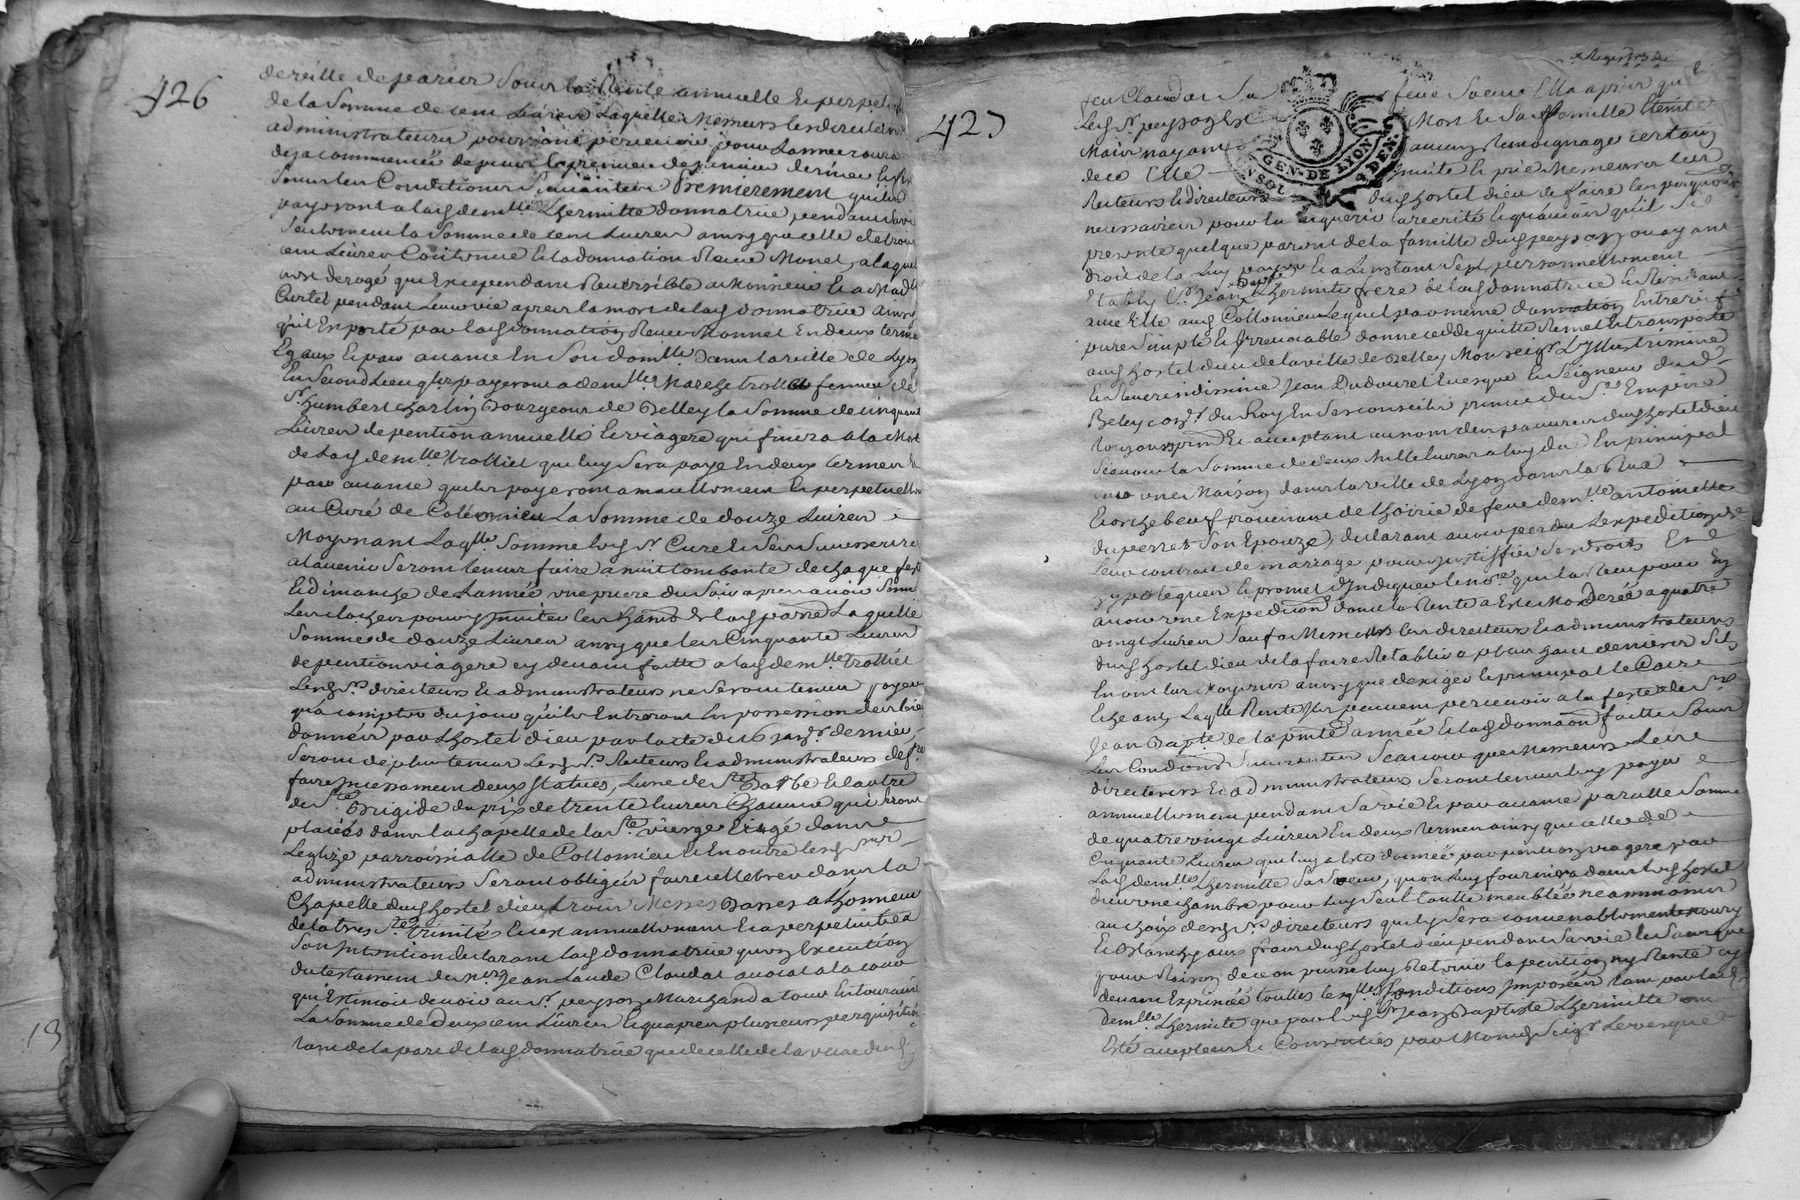 426
de veille de parier Sous la Rente annuelle Et perpetuelle
de la Somme de cent Livres Laquelle Messieurs les directeurs
administrateurs pour Lannee courante
deja commencée depuis le premier de janvier dernier
Sous les Conditions Suivantes Premierement quils
payeront a lad demlle Lhermitte donnatrice pendant sa vie
Seulement la Somme de cent Livres ainsy que celle de trois
cent Livres Contenue Et la donnation Receue Monet, a laquelle
nest derogé qui Est cependant Reversible a Monsieur Et a Made
Curtet pendant Leur vie apres la mort de lad donnatrice ainsy
quil Est porté par lad donnation Receue Monnet En deux termes
Egaux Et par avance En Son domille dans la ville de Lyon
En Second Lieu quils payeront a demlle trolliet femme de
Sr humbert Bourgeois de Belley la Somme de cinquante
Livres de pention annuelle Et viagere qui finira a la Mort
de lad demlle trolliet qui luy Sera payé En deux termes Et
par avance quils payeront annuellement Et perpetuellement
au Curé de Colomieu La Somme de douze Livres
Moyenant Laqlle Somme led Sr Curé Et Ses Successeurs
a lavenir Seront tenus faire a nuit tombante de chaque feste
Et dimanche de Lannée une priere du Soir apres avoir Sonné
Les cloches pour y Inviter les habitans de lad parroisse Laquelle
Somme de douze Livres ainsy que les Cinquante Livres
de pention viagere cy devant faitte a lad demlle trolliet
Lesd Srs directeurs Et administrateurs ne Seront tenus payer
qua compter du jour quils Entreront En possession des biens
donnés par Lhostel dieu par lacte du 6 janvr dernier
Seront de plus tenus Lesd Srs Recteurs Et administrateurs de
faire Incessament deux Statues, Lune de Ste Barbe Et lautre
de Ste Brigide du prix de trente livres Chacune qui Seront
placées dans la chapelle de la Ste vierge Erigé dans
Leglize parroissialle de Collomieu Et En outre lesd Srs
administrateurs Seront obligés faire cellebrer dans la
Chapelle dud hostel dieu trois Messes Basses a Lhonneur
de la tres Ste trinité Et ce annuellement Et a perpetuité a
Son Intention declarant lad donnatrice quen Execution
du testament de Mre Jean Claude Claudat avocat a la cour
qui Estimoit devoir au Sr peysson Marchand a tour En touraine
La Somme de Deux cent Livres Et quapres plusieurs perquisitions
tant de la part de lad donnatrice que de celle de la veuve dud
427
feu Claudat Sa feue Soeur Ella apris que
Led Sr peysson Est Mort Et Sa famille Eteinte
Mais nayant aucun temoignage certain
de ce Elle Invite Et prie Messieurs les
Recteurs Et directeurs dud hostel dieu de faire les perquisitions
necessaires pour En acquerir la verité Et quand quil Se
presente quelque parent de la famille dud peysson ayant
droit de la Luy payer Et a Linstant Sest personnellement
Etably Sr Jean Bapte Lhermite frere de lad donnatrice Et Residant
avec Elle aud Collomieu Lequel par meme donnation Entre vifs
pure Simple Et Irrevocable donne cedde quitte Remet Et transporte
aud hostel dieu de la ville de Belley Monseigr Lillustrissime
Et Reverendissime Jean Dudouret Evesque Et Seigneur dud
Beley consr du Roy En Ses conseils prince du St Empire
toujours pnt Et acceptant au nom des pauvres dud hostel dieu
Scavoir la Somme de deux Mille livres a luy du En principal
sur une Maison dans la ville de Lyon dans la Rue
Ecorchebeuf provenant de Lhoirie de feue demlle antoinette
duperret Son Epouze, declarant avoir perdu Lexpedition de
Leur contrat de marriage pour justiffier Ses droits Et
hypotequer Et promet dIndiquer le nore qui la Receu pour En
avoir une Expedition dont la Rente a Eté Moderée a quatre
vingt Livres Sauf a Messieurs les directeurs Et administrateurs
dud hostel dieu de la faire Retablir a plus haut denier Sils
En ont les Moyens ainsy que dexiger le principal le Cas
Echeant, Laqlle Rente Ils peuvent percevoir a la feste de St
Jean Bapte de la pnte année Et lad donnaon faitte Sous
Les Condions Suivantes Scavoir que Messieurs Les
directeurs Et administrateurs Seront tenus luy payer
annuellement pendant Sa vie Et par avance paralle Somme
de quatre vingt Livres En deux termes ainsy que celle de
Cinquante Livres qui luy a Eté donnée par pention viagere par
Lad demlle Lhermitte Sa Soeur, quon luy fournira dans led hostel
dieu une chambre pour luy Seul toutte meublée neanmoins
au choix desd Srs directeurs quil y Sera convenablement nourry
Et Blanchy aux fraix dud hostel dieu pendant Sa vie Et Sans que
pour Raison de ce on puisse luy Retenir la pention ny Rente cy
devant Exprimée touttes lesqlles Conditions Imposées tant par lad
demlle Lhermite que par led Sr Jean Baptiste Lhermitte ont
Eté acceptées Et Consenties par Mond Seigr Levesque
GEN. DE LYON